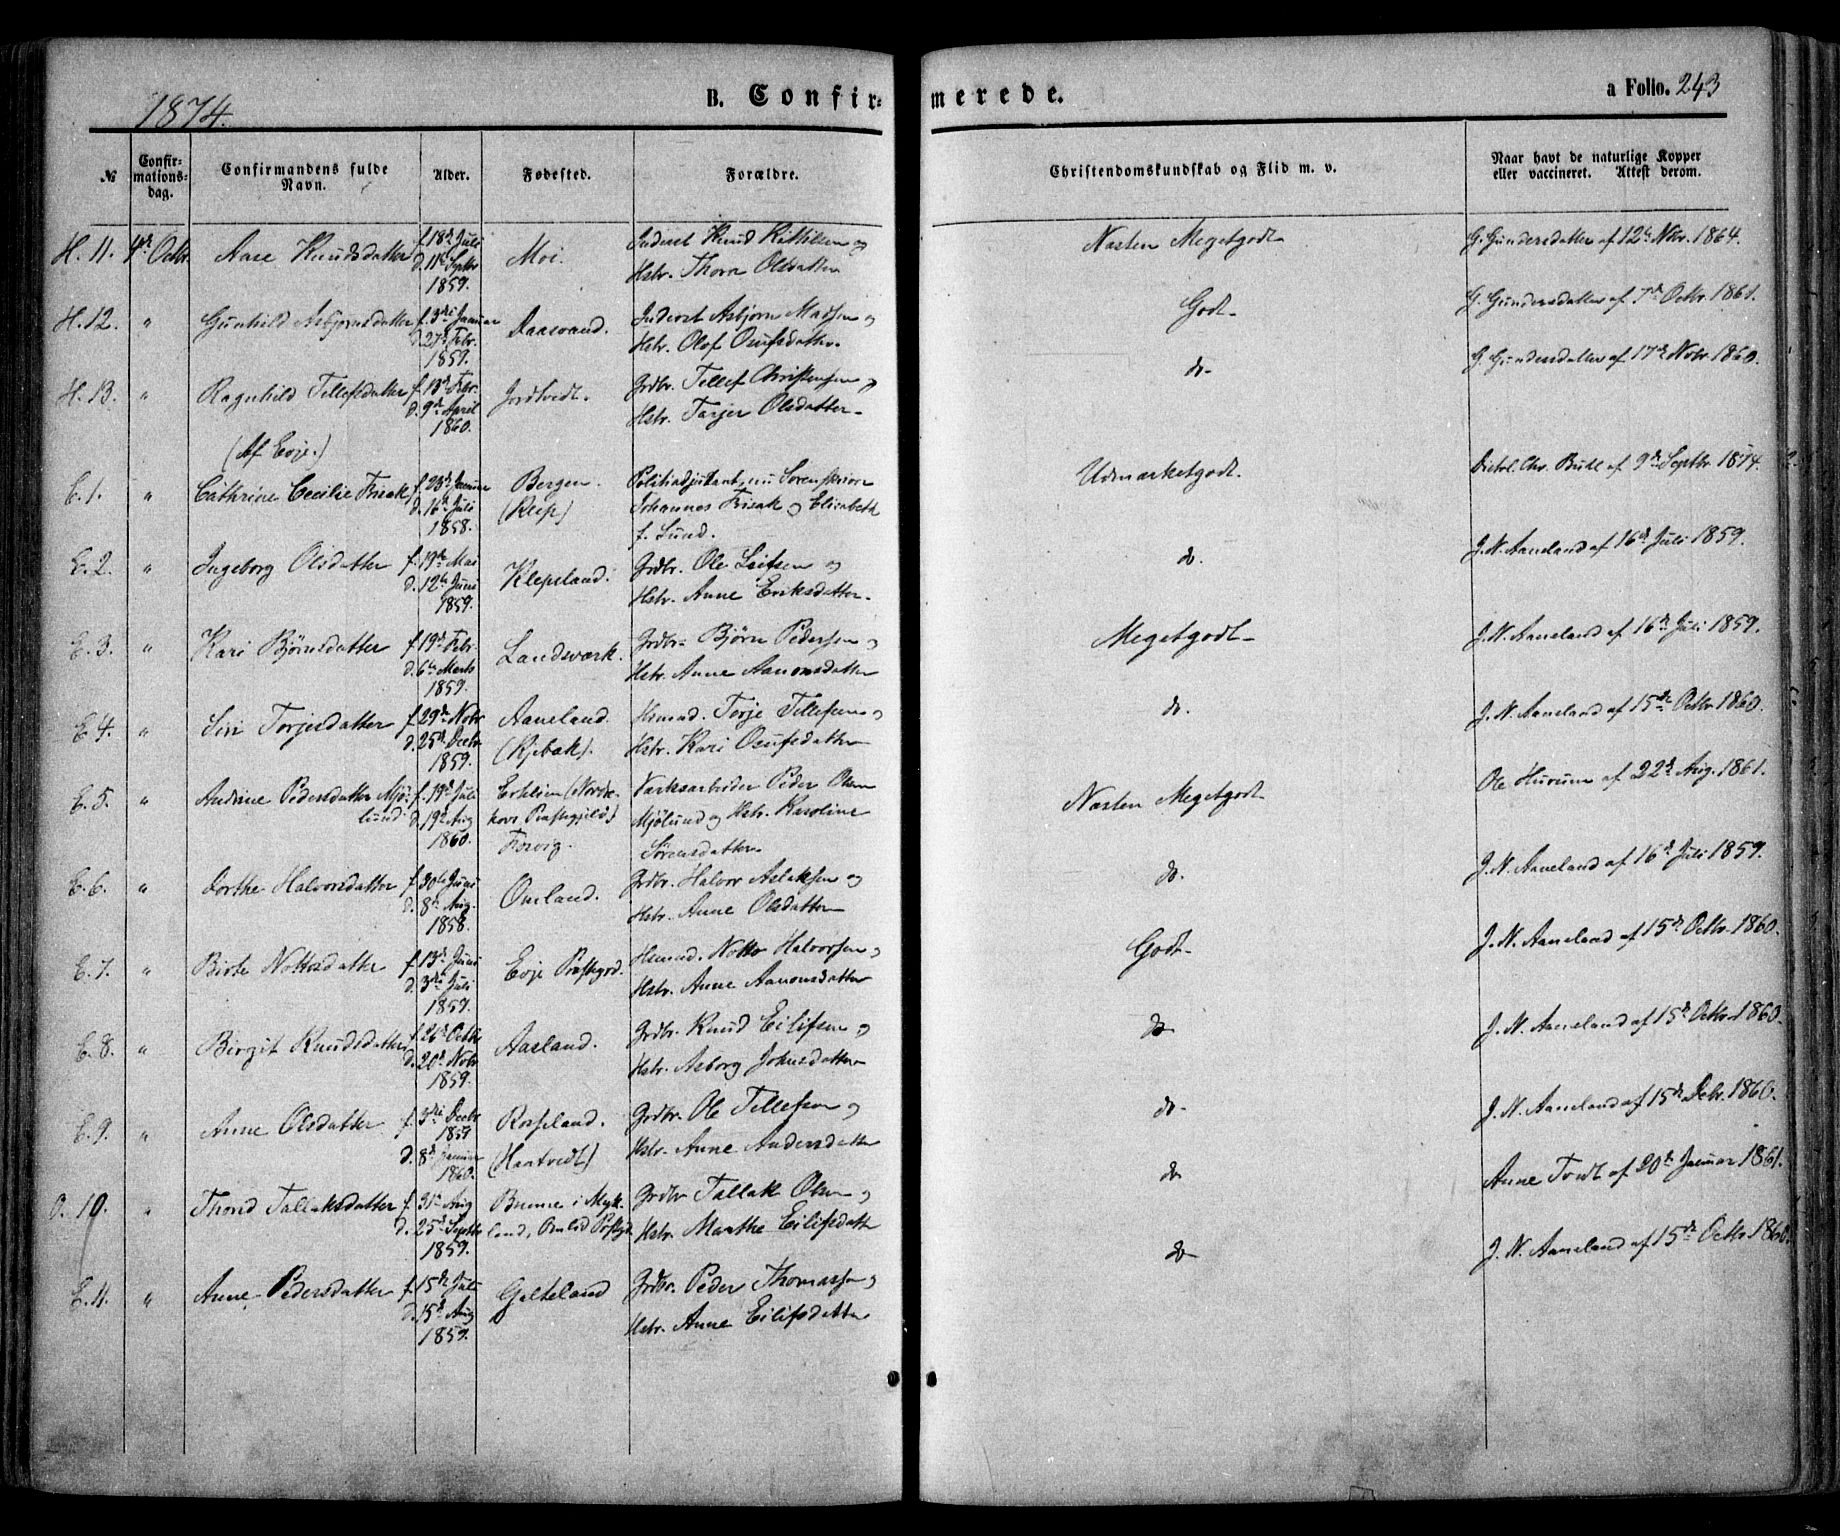 1874.
B. Confirmerede.
a Folio. 243
№
Confirmationsdag.
Confirmandens fulde Navn.
Alder.
Fødested.
Forældre.
Christendomskundskab og Flid m. v.
Naar havt de naturlige Kopper eller vaccineret. Attest derom.
H. 11. 4de Octbr. Aase Knudsdatter f. 18de Juli d. 11te Septbr 1859. Moi. Inderst Knud Kittilsen og Hstr. Thore Olsdatter Næsten Megetgodt G. Gundersdatter af 12te Nbr. 1864.
H. 12. " Gunhild Asbjørnsdatter f. 3die Januar d. 27de Febr. 1859. Daasvand. Inderst Asbjørn Madsen og Hstr. Olof Osufsdatter. Godt G. Gundersdatter af 7de Octbr. 1861.
H. 13. " Ragnhild Tellefsdatter f. 13de Febr. d. 9de April 1860. Jordtvedt. Grdbr. Tellef Christensen og Hstr. Torjer Olsdatter do G. Gundersdatter af 17de Novbr. 1860.
(Af Evje.)
E. 1. " Cathrine Cecilie Frisak f. 23de Januar d. 16de Juli 1858. Bergen. (Reip) Politiadjutant, nu Sorenskriver Johannes Frisak og Elisabeth f. Lund. Udmærketgodt. Dietrl. Chr. Bull af 9de Septbr. 1874.
E. 2. " Ingeborg Olsdatter f. 19de Mai d. 12te Juni 1859. Klepsland. Grdbr. Ole Leifsen og Hstr. Anne Eriksdatter do. J. N. Aaneland af 16de Juli 1859.
E. 3. " Kari Bjørnsdatter f. 19de Febr. d. 6te Marts 1859. Landsværk. Grdbr. Bjørn Pedersen og Hstr. Anne Aanonsdatter Megetgodt J. N. Aaneland af 16de Juli 1859.
E. 4. " Siri Torjesdatter f. 29de Nobr d. 25de Decbr 1859. Aaneland. (Kjebæk). Husmd. Torje Tellefsen og Hstr. Kari Osufsdatter do. J. N. Aaneland af 15de Octbr 1860.
E. 5. " Andrine Pedersdatter Mjølund. f. 19de Juli d. 19de Aug 1860. (Nordrehovs Præstegjeld) Værksarbeider Peder Olsen Mjølund og Hstr. Karoline Sørensdatter Næsten Megetgodt Ole Hurum af 22de Aug. 1861.
E. 6. " Dorthe Halvorsdatter f. 30te Juni d. 8de Aug. 1858. Omland. Grdbr. Halvor Aslaksen og Hstr. Anne Olsdatter do. J. N. Aaneland af 16de Juli 1859.
E. 7. " Birte Nottosdatter f. 13de Juni d. 3die Juli 1859. Evje Præstegrd. Husmd. Notto Halvorsen og Hstr. Anne Aanonsdatter Godt J. N. Aaneland af 15de Octbr. 1860.
E. 8. " Birgit Knudsdatter f. 26de Octbr d. 20de Nobr 1859. Aasland. Grdbr. Knud Eilifsen og Hstr. Asborg Johnsdatter do J. N. Aaneland af 15de Octbr 1860.
E. 9. " Anne Olsdatter f. 3die Decbr 1859 d. 8de Januar 1860. Rosseland. (Hantvedt) Grdbr. Ole Tellefsen og Hstr. Anne Andersdatter do. J. N. Aaneland af 15de Debr. 1860.
O. 10. " Thorid Tallaksdatter f. 31te Aug d. 25de Septbr 1859. i Mykland, Omlid Præstegjd Grdbr Tallak Olsen og Hstr. Marthe Eilifsdatter do Anne Tvedt af 20de Januar 1861.
E. 11. " Anne Pedersdatter f. 15de Juli d. 15de Aug 1859. Galteland Grdbr. Peder Thomassen og Hstr. Anne Eilifsdatter do J. N. Aaneland af 15de Octbr. 1860.